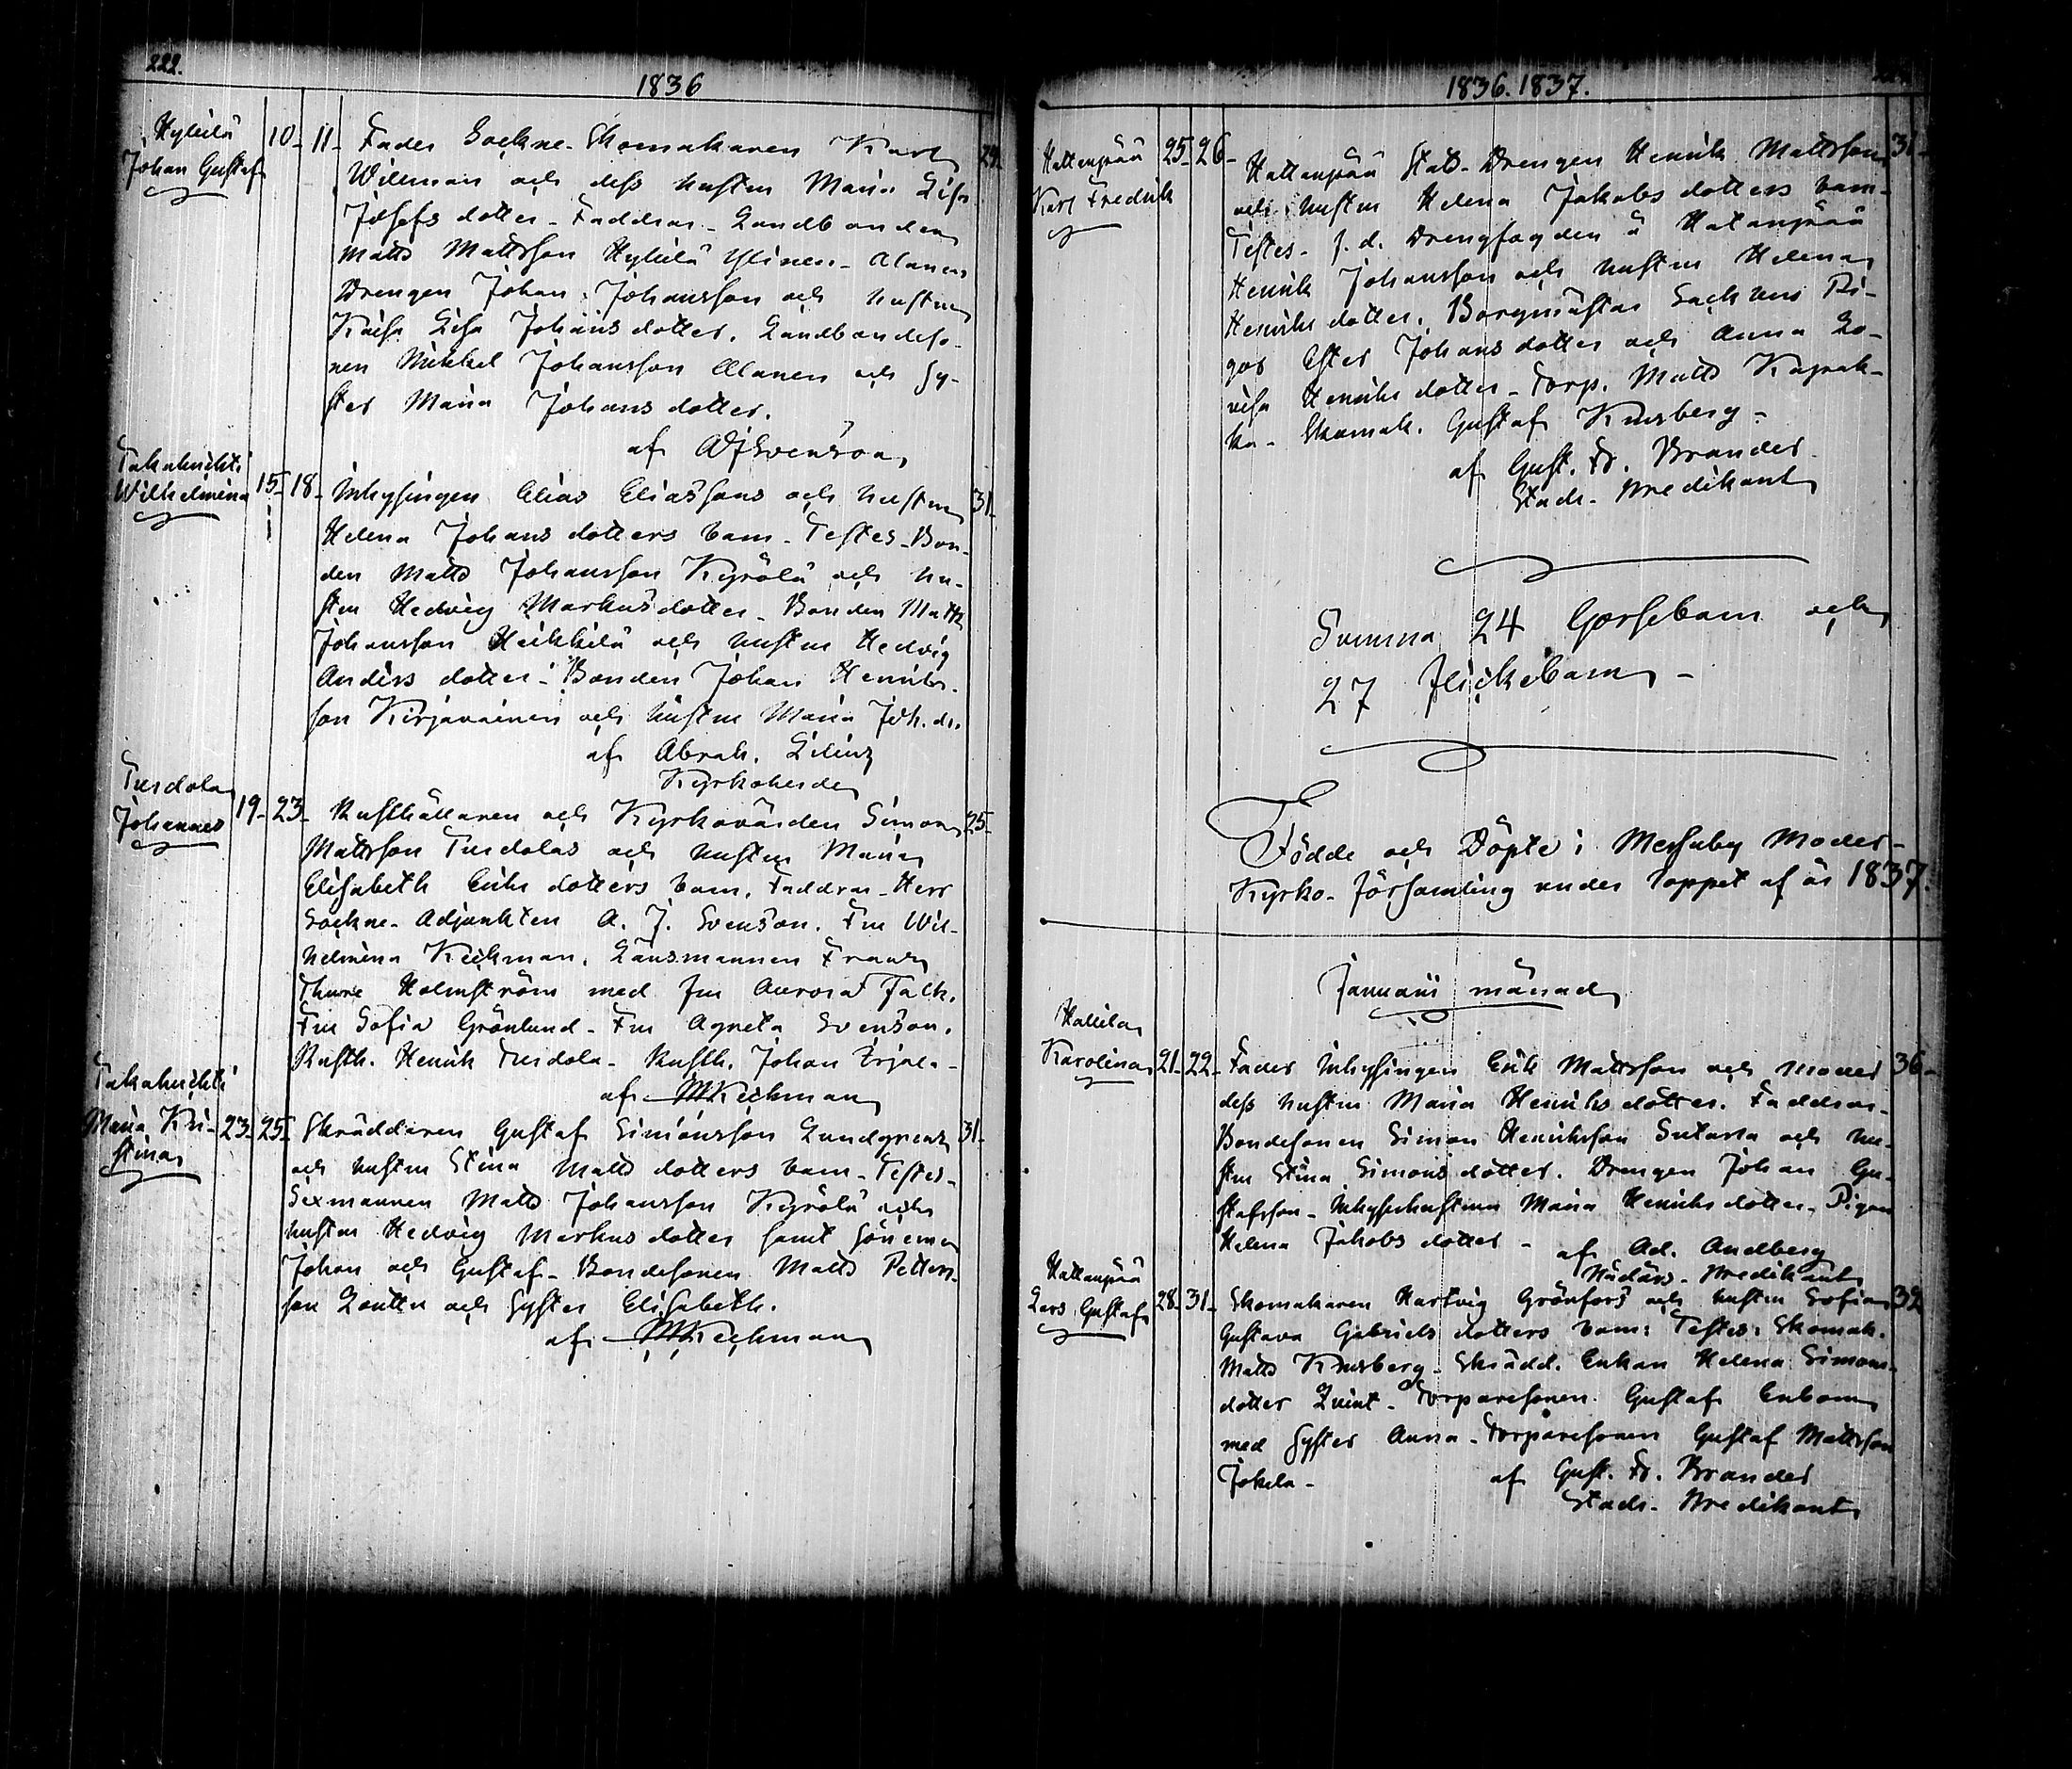 222.
1836
Hyhilä
Johan Gustaf
10- 11- Fader Sockne-Skomakaren Karl 29-
Wileman och dess hustru Maria Lisa
Josefs dotter. Faddrar. Landbonden
Matts Mattsson Hyhilä Ylinen. Alanen
Drengen Johan Johansson och hustru
Kaisa Lisa Johans dotter. Landbondeso-
nen Mikkel Johansson Alanen och Sy-
ster Maria Johans dotter.
af AJSvenson
Takahuchti
Wilhelmina
15- 18- Inhysingen Elias Eliassons och hustrun 31-
Helena Johans dotters barn. Testes. Bon-
den Matts Johansson Kyrölä och hu-
stru Hedvig Markus dotter. Bonden Matts
Johansson Heikkilä och hustru Hedvig
Anders dotter. Bonden Johan Henriks-
son Kirjavainen och hustru Maria Joh. dr.
af Abrah. Lilius
Kyrkoherde
Turdola
Johannes
19- 23- Rusthållaren och Kyrkovärden Simon 25-
Mattsson Turdolas och hustru Maria
Elisabeth Eriks dotters barn. Faddrar. Herr
Sockne-Adjunkten A. J. Svenson. Fru Wil-
helmina Keckman. Länsmannen Frantz
Thure Holmström med fru Aurora Falk.
Fru Sofia Grönlund. Fru Agneta Svenson.
Rusth. Henrik Turdola. Rusth. Johan Erjal-
af MKeckman
Takahuchti
Maria Kri-
stina
23- 25- Skräddaren Gustaf Simonsson Lundgrens 31-
och hustru Stina Matts dotters barn. Testes-
Sexmannen Matts Johansson Kyrölä och
hustru Hedvig Markus dotter samt Sönerna
Johan och Gustaf. Bondesonen Matts Petters-
son Zouttu och Syster Elisabeth.
af MKeckman
1836. 1837.
Hattanpää
Karl Fredrik
25- 26- Hattanpää Stat-Drengen Henrik Mattsson 31-
och hustru Helena Jakobs dotters barn-
Testes. f. d. Drengfogden å Hatanpää
Henrik Johansson och hustru Helena
Henriks dotter. Borgmästar Sackens Pi-
gor Ester Johans dotter och Anna Lo-
visa Henriks dotter. Torp. Matts Kaprak-
ka. Skomak. Gustaf Knusberg-
af Gust. Fr. Brander
Stads-Predikant
Summa 24 Gossebarn och
27 flickebarn -
Födde och Döpte i Messuby Moder-
Kyrko-församling under loppet af år 1837.
Januari månad
Hallila
Karolina
21- 22- Fader Inhysingen Erik Mattsson och moder 36-
dess hustru Maria Henriks dotter. Faddrar-
Bondesonen Simon Henriksson Sutarla och hu-
stru Stina Simons dotter. Drengen Johan Gu-
stafsson. Inhyseshustrun Maria Henriks dotter. Pigan
Helena Jakobs dotter - af Ad. Andberg
Nådårs-Predikant
Hattanpää
Lars Gustaf
28- 31- Skomakaren Hartvig Grönfors och hustru Sofia 32
Gustava Gabriels dotters barn: Testes: Skomak.
Matts Knusberg. Skrädd. Enkan Helena Simons-
dotter Quint. Torparesonen Gustaf Enbom
med Syster Anna. Torparesonen Gustaf Mattsson
Jokela -
af Gust. Fr. Brander
Stads-Predikant